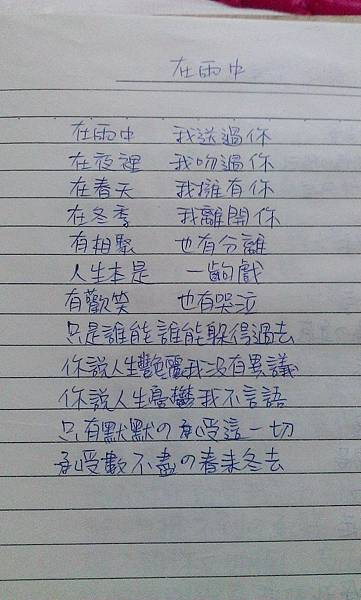 在雨中
在雨中 我送過你
在夜裡 我吻過你
在春天 我擁有你
在冬季 我離開你
有相聚 也有分離
人生本是 一齣戲
有歡笑 也有哭泣
只是誰能誰能躲得過去
你說人生艷麗我沒有異議
你說人生憂鬱我不言語
只有默默の承受這一切
承受數不盡の春來冬去